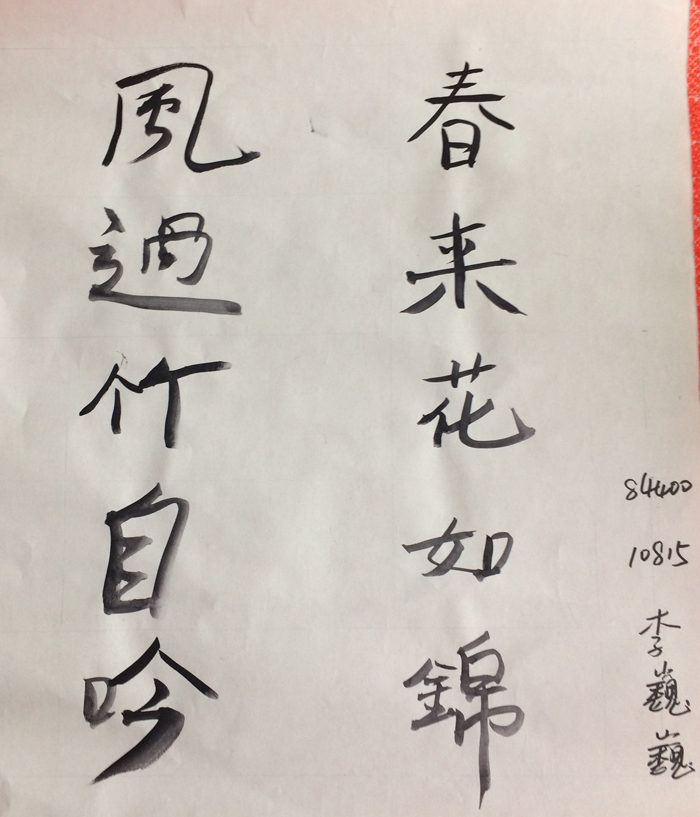 春来花如錦
風過竹自吟
84400
10815
李巍巍